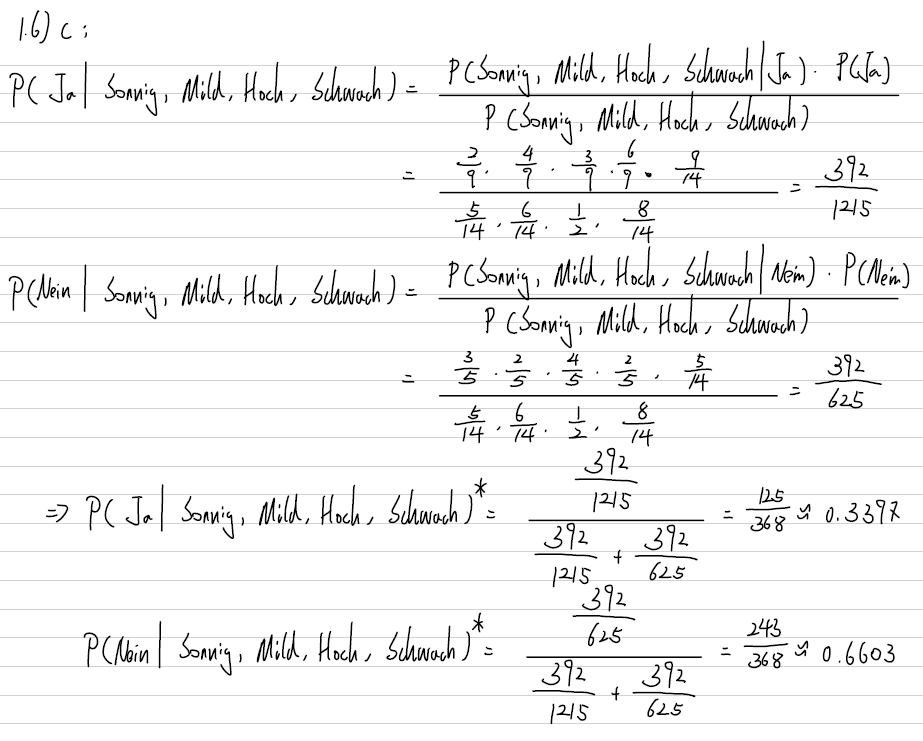 1.6) c:
P(Ja | Sonnig, Mild, Hoch, Schwach) = P(Sonnig, Mild, Hoch, Schwach | Ja) · P(Ja) / P(Sonnig, Mild, Hoch, Schwach)
= (2/9 · 4/9 · 3/9 · 6/9 · 9/14) / (5/14 · 6/14 · 1/2 · 8/14) = 392/1215
P(Nein | Sonnig, Mild, Hoch, Schwach) = P(Sonnig, Mild, Hoch, Schwach | Nein) · P(Nein) / P(Sonnig, Mild, Hoch, Schwach)
= (3/5 · 2/5 · 4/5 · 2/5 · 5/14) / (5/14 · 6/14 · 1/2 · 8/14) = 392/625
=> P(Ja | Sonnig, Mild, Hoch, Schwach)* = (392/1215) / (392/1215 + 392/625) = 125/368 ≈ 0.3397
P(Nein | Sonnig, Mild, Hoch, Schwach)* = (392/625) / (392/1215 + 392/625) = 243/368 ≈ 0.6603